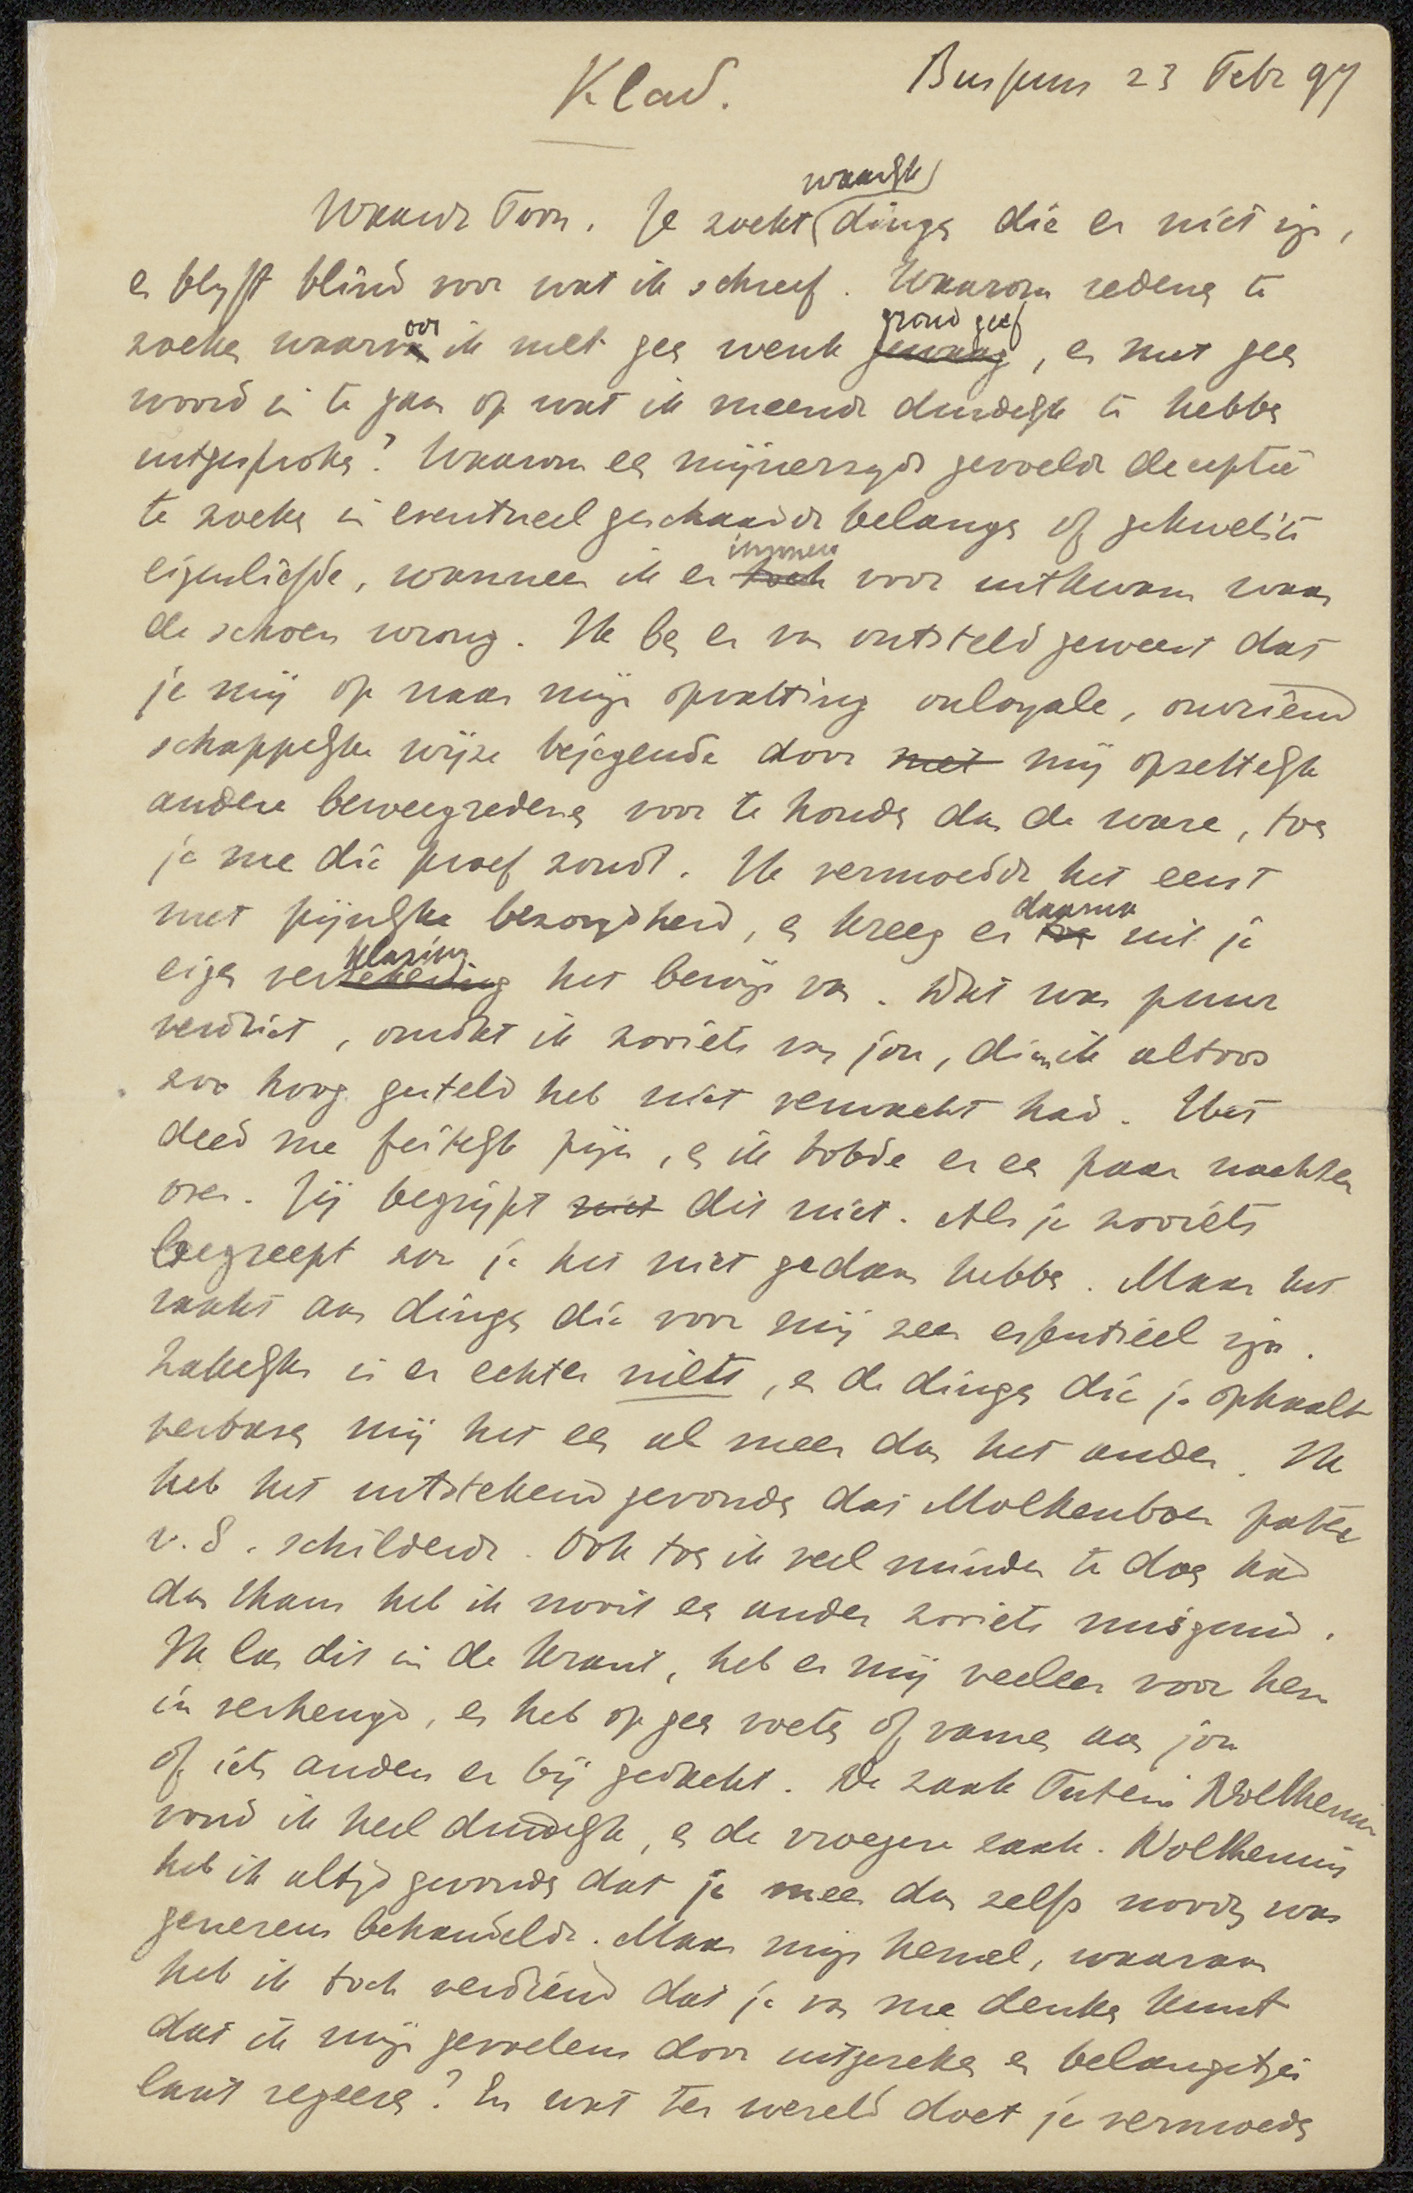 Klad.
Bussum 23 Febr 97
Waarde Toon. Je zoekt waarlijk dingen die er niet zijn,
en blijft blind voor wat ik schreef. Waarom redenen te
zoeken waarvoor ik met geen wenk gewaag grond geef, en met geen
woord in te gaan op wat ik meende duidelijk te hebben
uitgesproken? Waarom een mijnerzijds gevoelde deceptie
te zoeken in eventueel geschaadde belangen of gekwetste
eigenliefde, wanneer ik er toch immers voor uitkwam waar
de schoen wrong. Ik ben er van ontsteld geweest dat
je mij op naar mijn opvatting onloyale, onvriend
schappelijke wijze bejegende door met mij opzettelijk
andere beweegredenen voor te houden dan de ware, toen
je me die proef zondt. Ik vermoedde het eerst
met pijnlijke bezorgdheid, en kreeg er toen daarna uit je
eigen verzekering klaring het bewijs van. Dat was puur
verdriet, omdat ik zooiets van jou, dien ik altoos
zoo hoog gesteld heb niet verwacht had. Het
deed me feitelijk pijn, en ik tobde er een paar nachten
over. Jij begrijpt niet dit niet. Als je zooiets
begreept zou je het niet gedaan hebben. Maar het
raakt aan dingen die voor mij zeer essentieel zijn.
Zakelijks is er echter niets, en de dingen die je ophaalt
verbazen mij het een al meer dan het ander. Ik
heb het uitstekend gevonden dat Molkenboer pater
v. S. schilderde. Ook toen ik veel minder te doen had
dan thans heb ik nooit een ander zooiets misgund.
Ik las dit in de krant, heb er mij veeleer voor hem
in verheugd, en heb op geen voeten of vamen aan jou
of iets anders er bij gedacht. De zaak Tutein Nolthenius
vond ik heel duidelijk, en de vroegere zaak. Nolthenius
heb ik altijd gevonden dat je meer dan zelfs noodig was
genereus behandelde. Maar mijn hemel, waaraan
heb ik toch verdiend dat je van me denken kunt
dat ik mijn gevoelens door uitgereken en belangetjes
laat regeeren? En wat ter wereld doet je vermoeden